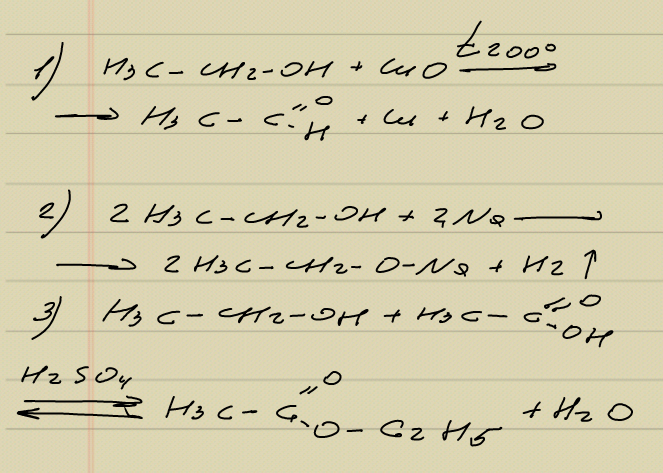 1) H3C-CH2-OH + CuO t200°
→ H3C-C=O-H + Cu + H2O
2) 2H3C-CH2-OH + 2Na →
→ 2H3C-CH2-O-Na + H2↑
3) H3C-CH2-OH + H3C-C=O-OH
H2SO4 ⇄ H3C-C=O-O-C2H5 + H2O